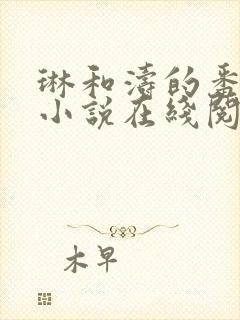 琳和濤的番
小說在綫閱
木早